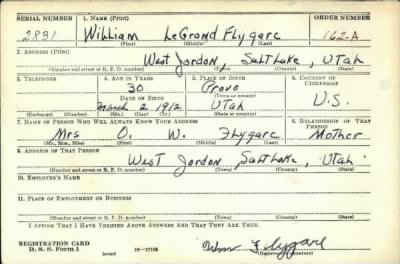 SERIAL NUMBER 1. NAME (Print) ORDER NUMBER
2831 William LeGrand Flygare 162-A
(First) (Middle) (Last)
2. ADDRESS (Print)
West Jordon, Salt Lake, Utah
(Number and street or R. F. D. number) (Town) (County) (State)
3. TELEPHONE 4. AGE IN YEARS 5. PLACE OF BIRTH 6. COUNTRY OF CITIZENSHIP
30 Provo
DATE OF BIRTH (Town or county)
March 2 1912 Utah U.S.
(Exchange) (Number) (Mo.) (Day) (Yr.) (State or country)
7. NAME OF PERSON WHO WILL ALWAYS KNOW YOUR ADDRESS 8. RELATIONSHIP OF THAT PERSON
Mrs O. W. Flygare Mother
(Mr., Mrs., Miss) (First) (Middle) (Last)
9. ADDRESS OF THAT PERSON
West Jordon, Salt Lake, Utah
(Number and street or R. F. D. number) (Town) (County) (State)
10. EMPLOYER'S NAME
11. PLACE OF EMPLOYMENT OR BUSINESS
(Number and street or R. F. D. number) (Town) (County) (State)
I AFFIRM THAT I HAVE VERIFIED ABOVE ANSWERS AND THAT THEY ARE TRUE.
REGISTRATION CARD
D. S. S. Form 1 (over) 16-17105 Wm Flygare